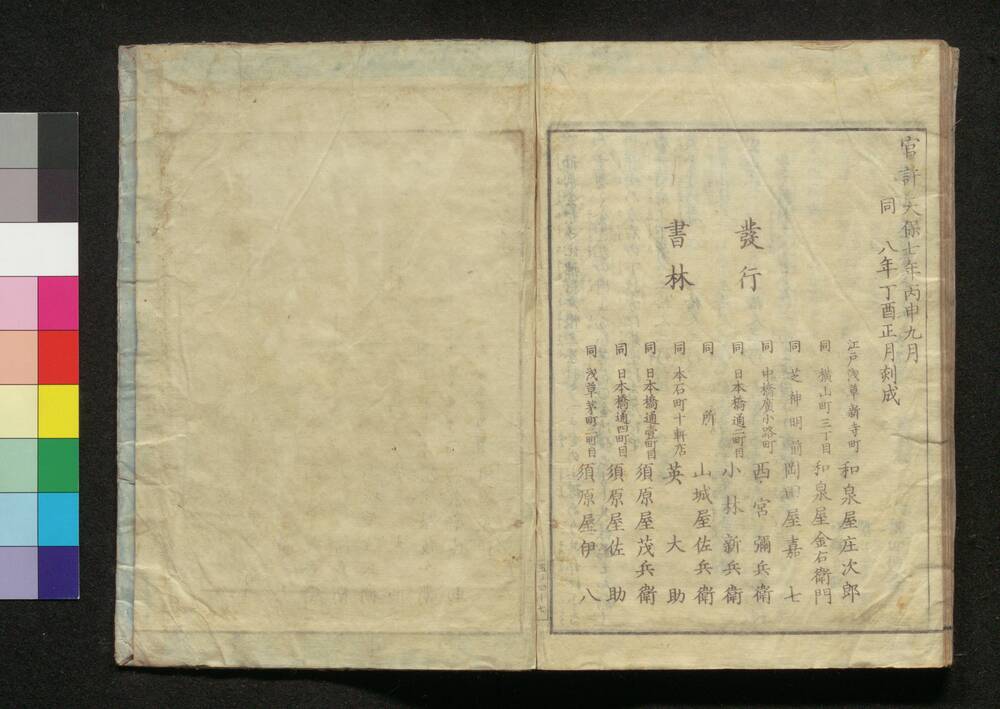 官許 天保七年丙申九月
同 八年丁酉正月刻成
發行
書林
江戸浅草新寺町 和泉屋庄次郎
同 横山町三丁目 和泉屋金右衛門
同 芝神明前 岡田屋嘉七
同 中橋廣小路町 西宮彌兵衛
同 日本橋通二町目 小林新兵衛
同 所 山城屋佐兵衛
同 本石町十軒店 英大助
同 日本橋通壹町目 須原屋茂兵衛
同 日本橋通四町目 須原屋佐助
同 浅草茅町二町目 須原屋伊八